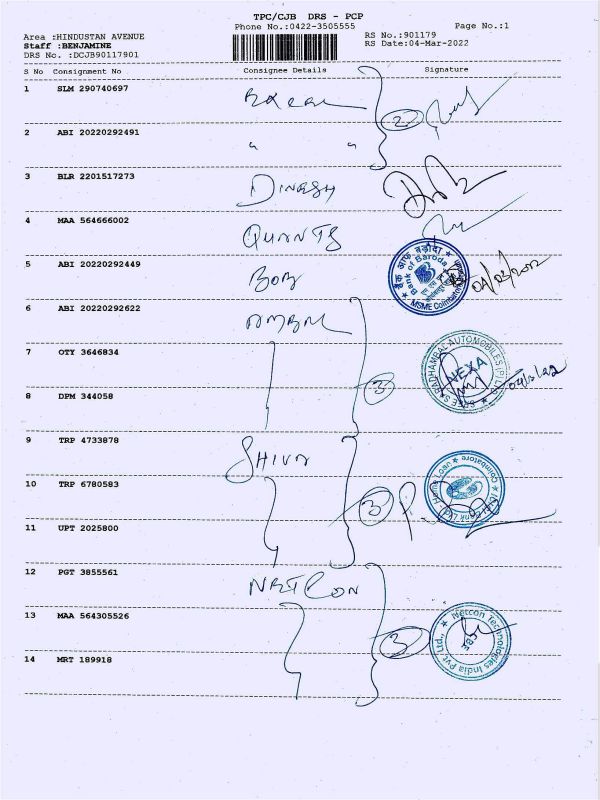 TPC/CJB DRS - PCP
Phone No.:0422-3505555 Page No.:1
Area :HINDUSTAN AVENUE RS No.:901179
Staff :BENJAMINE RS Date:04-Mar-2022
DRS No. :DCJB90117901
S No Consignment No Consignee Details Signature
1 SLM 290740697
2
2 ABI 20220292491 " "
3 BLR 2201517273 DINESH
4 MAA 564666002 QUANTS
बैंक ऑफ बड़ौदा
Bank of Baroda
MSME Coimbatore
5 ABI 20220292449 BOB
6 ABI 20220292622 AMBAL
SREE SARADHAMBAL AUTOMOBILES (P) LTD
NEXA
7 OTY 3646834
3
8 DPM 344058
9 TRP 4733878 SHIVA
10 TRP 6780583
3
Coimbatore
11 UPT 2025800
12 PGT 3855561 NETCON
13 MAA 564305526
3
Netcon Technologies India Pvt Ltd.,
14 MRT 189918